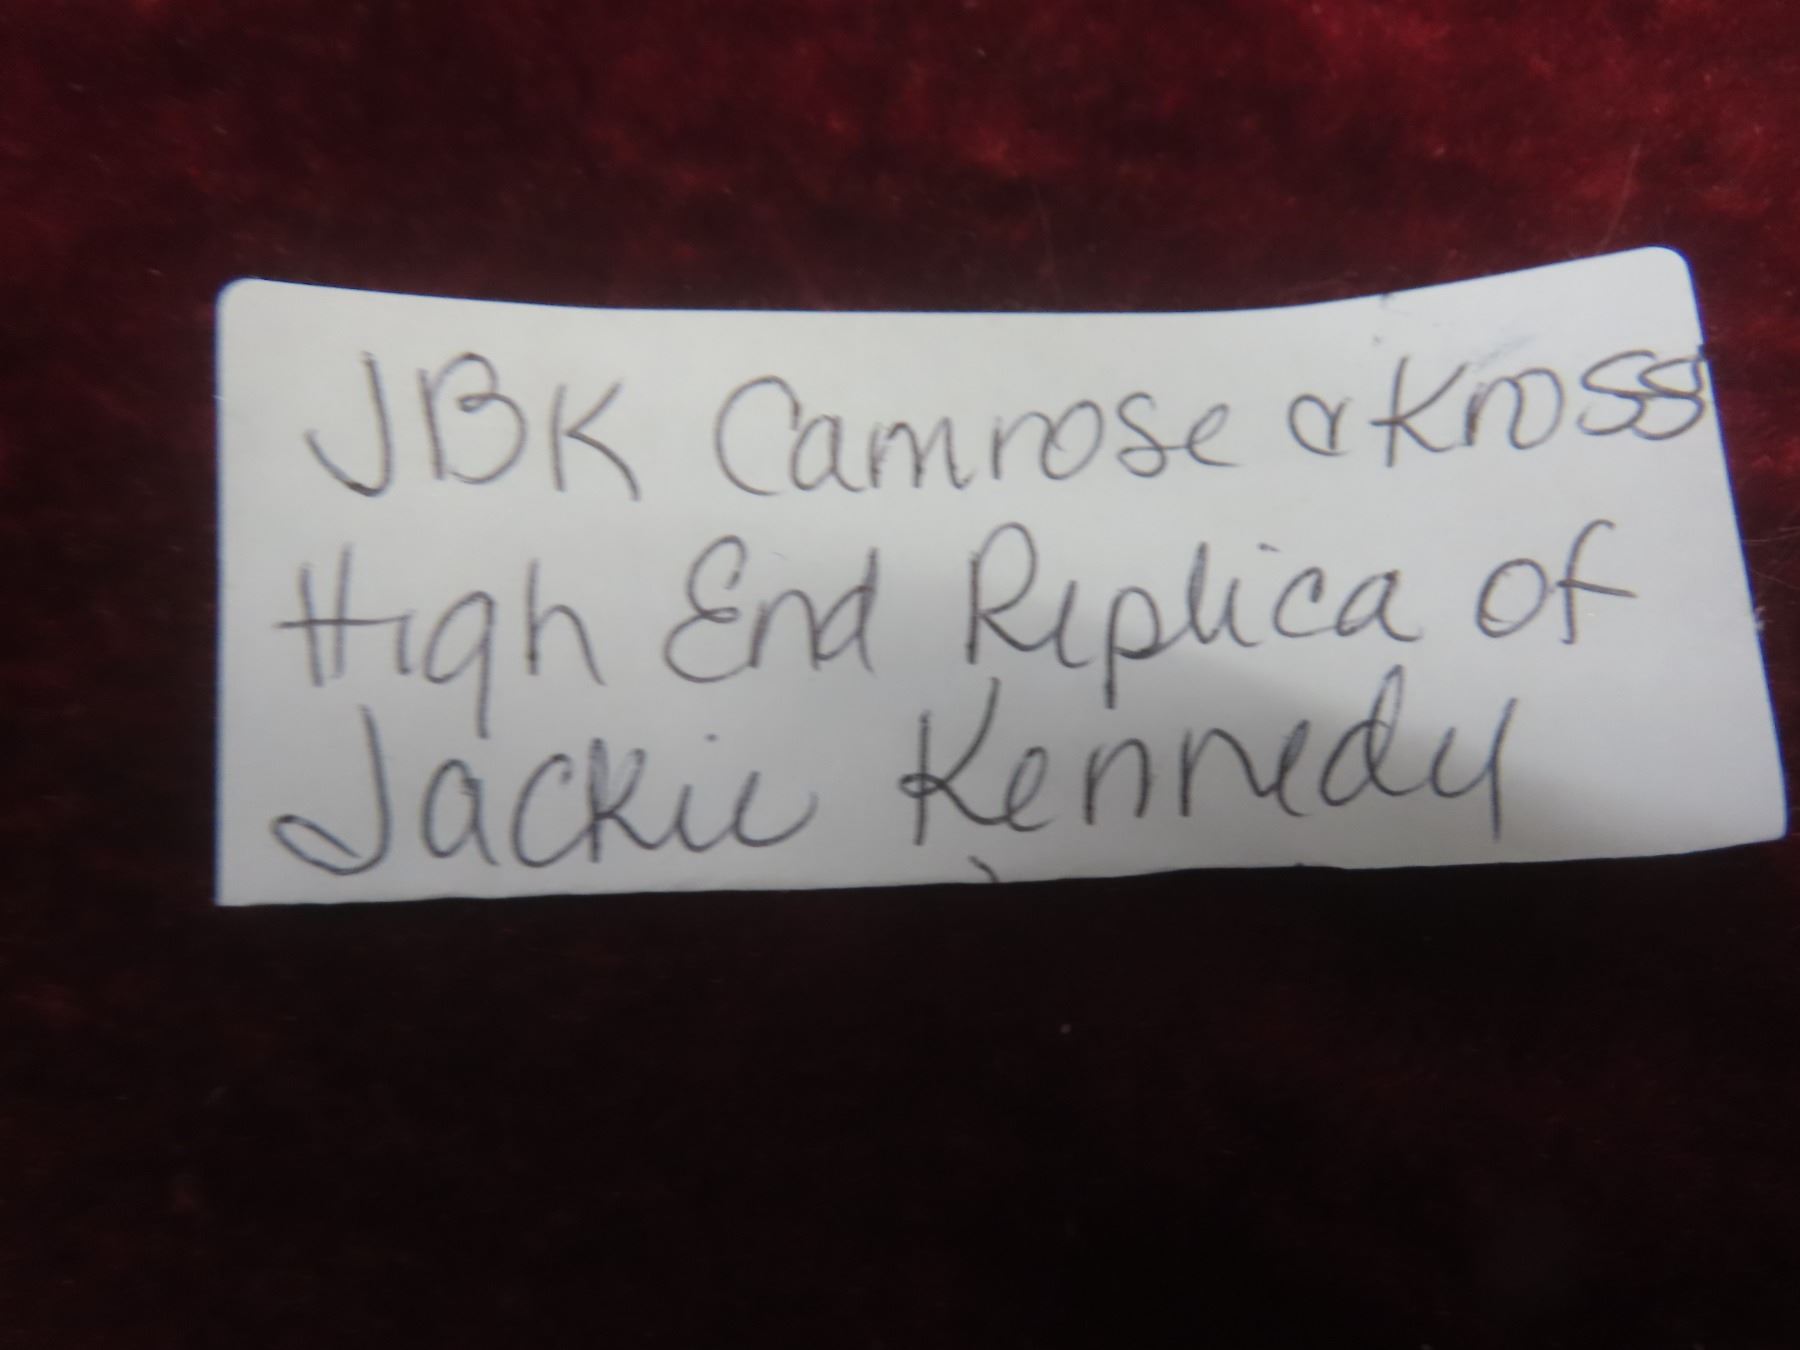 JBK Camrose & Kross
High End Replica of
Jackie Kennedy